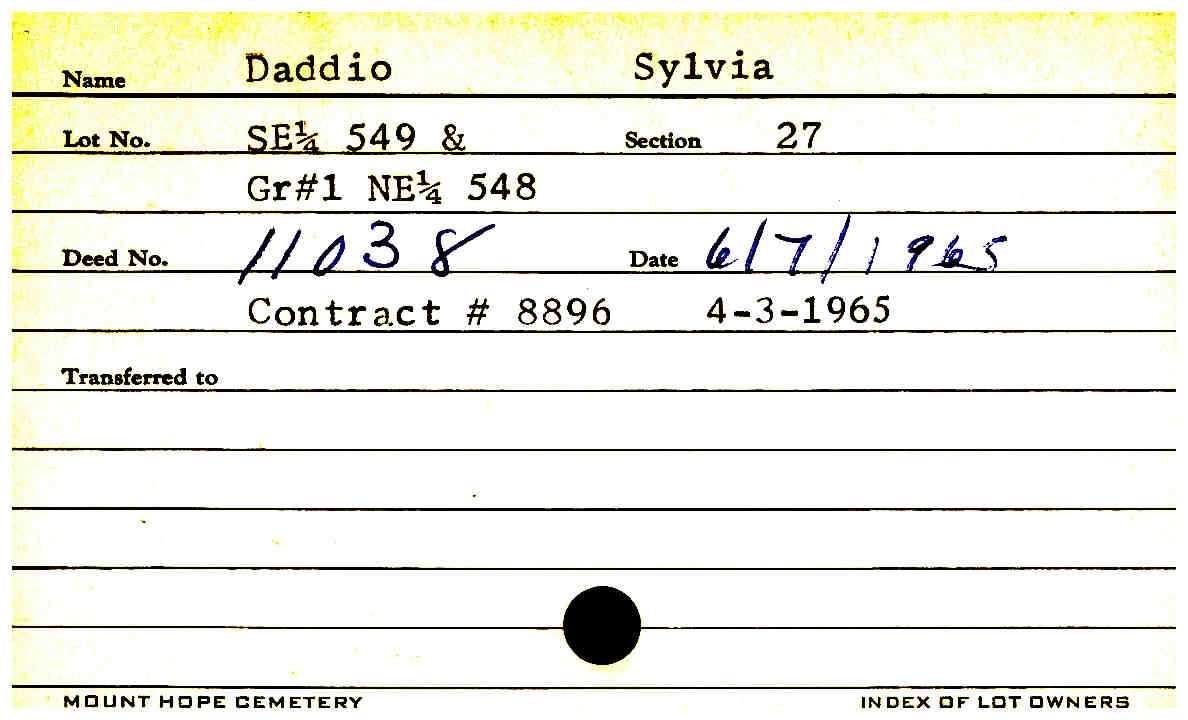 Name Daddio Sylvia
Lot No. SE¼ 549 & Section 27
Gr#1 NE¼ 548
Deed No. 11038 Date 6/7/1965
Contract # 8896 4-3-1965
Transferred to
MOUNT HOPE CEMETERY INDEX OF LOT OWNERS